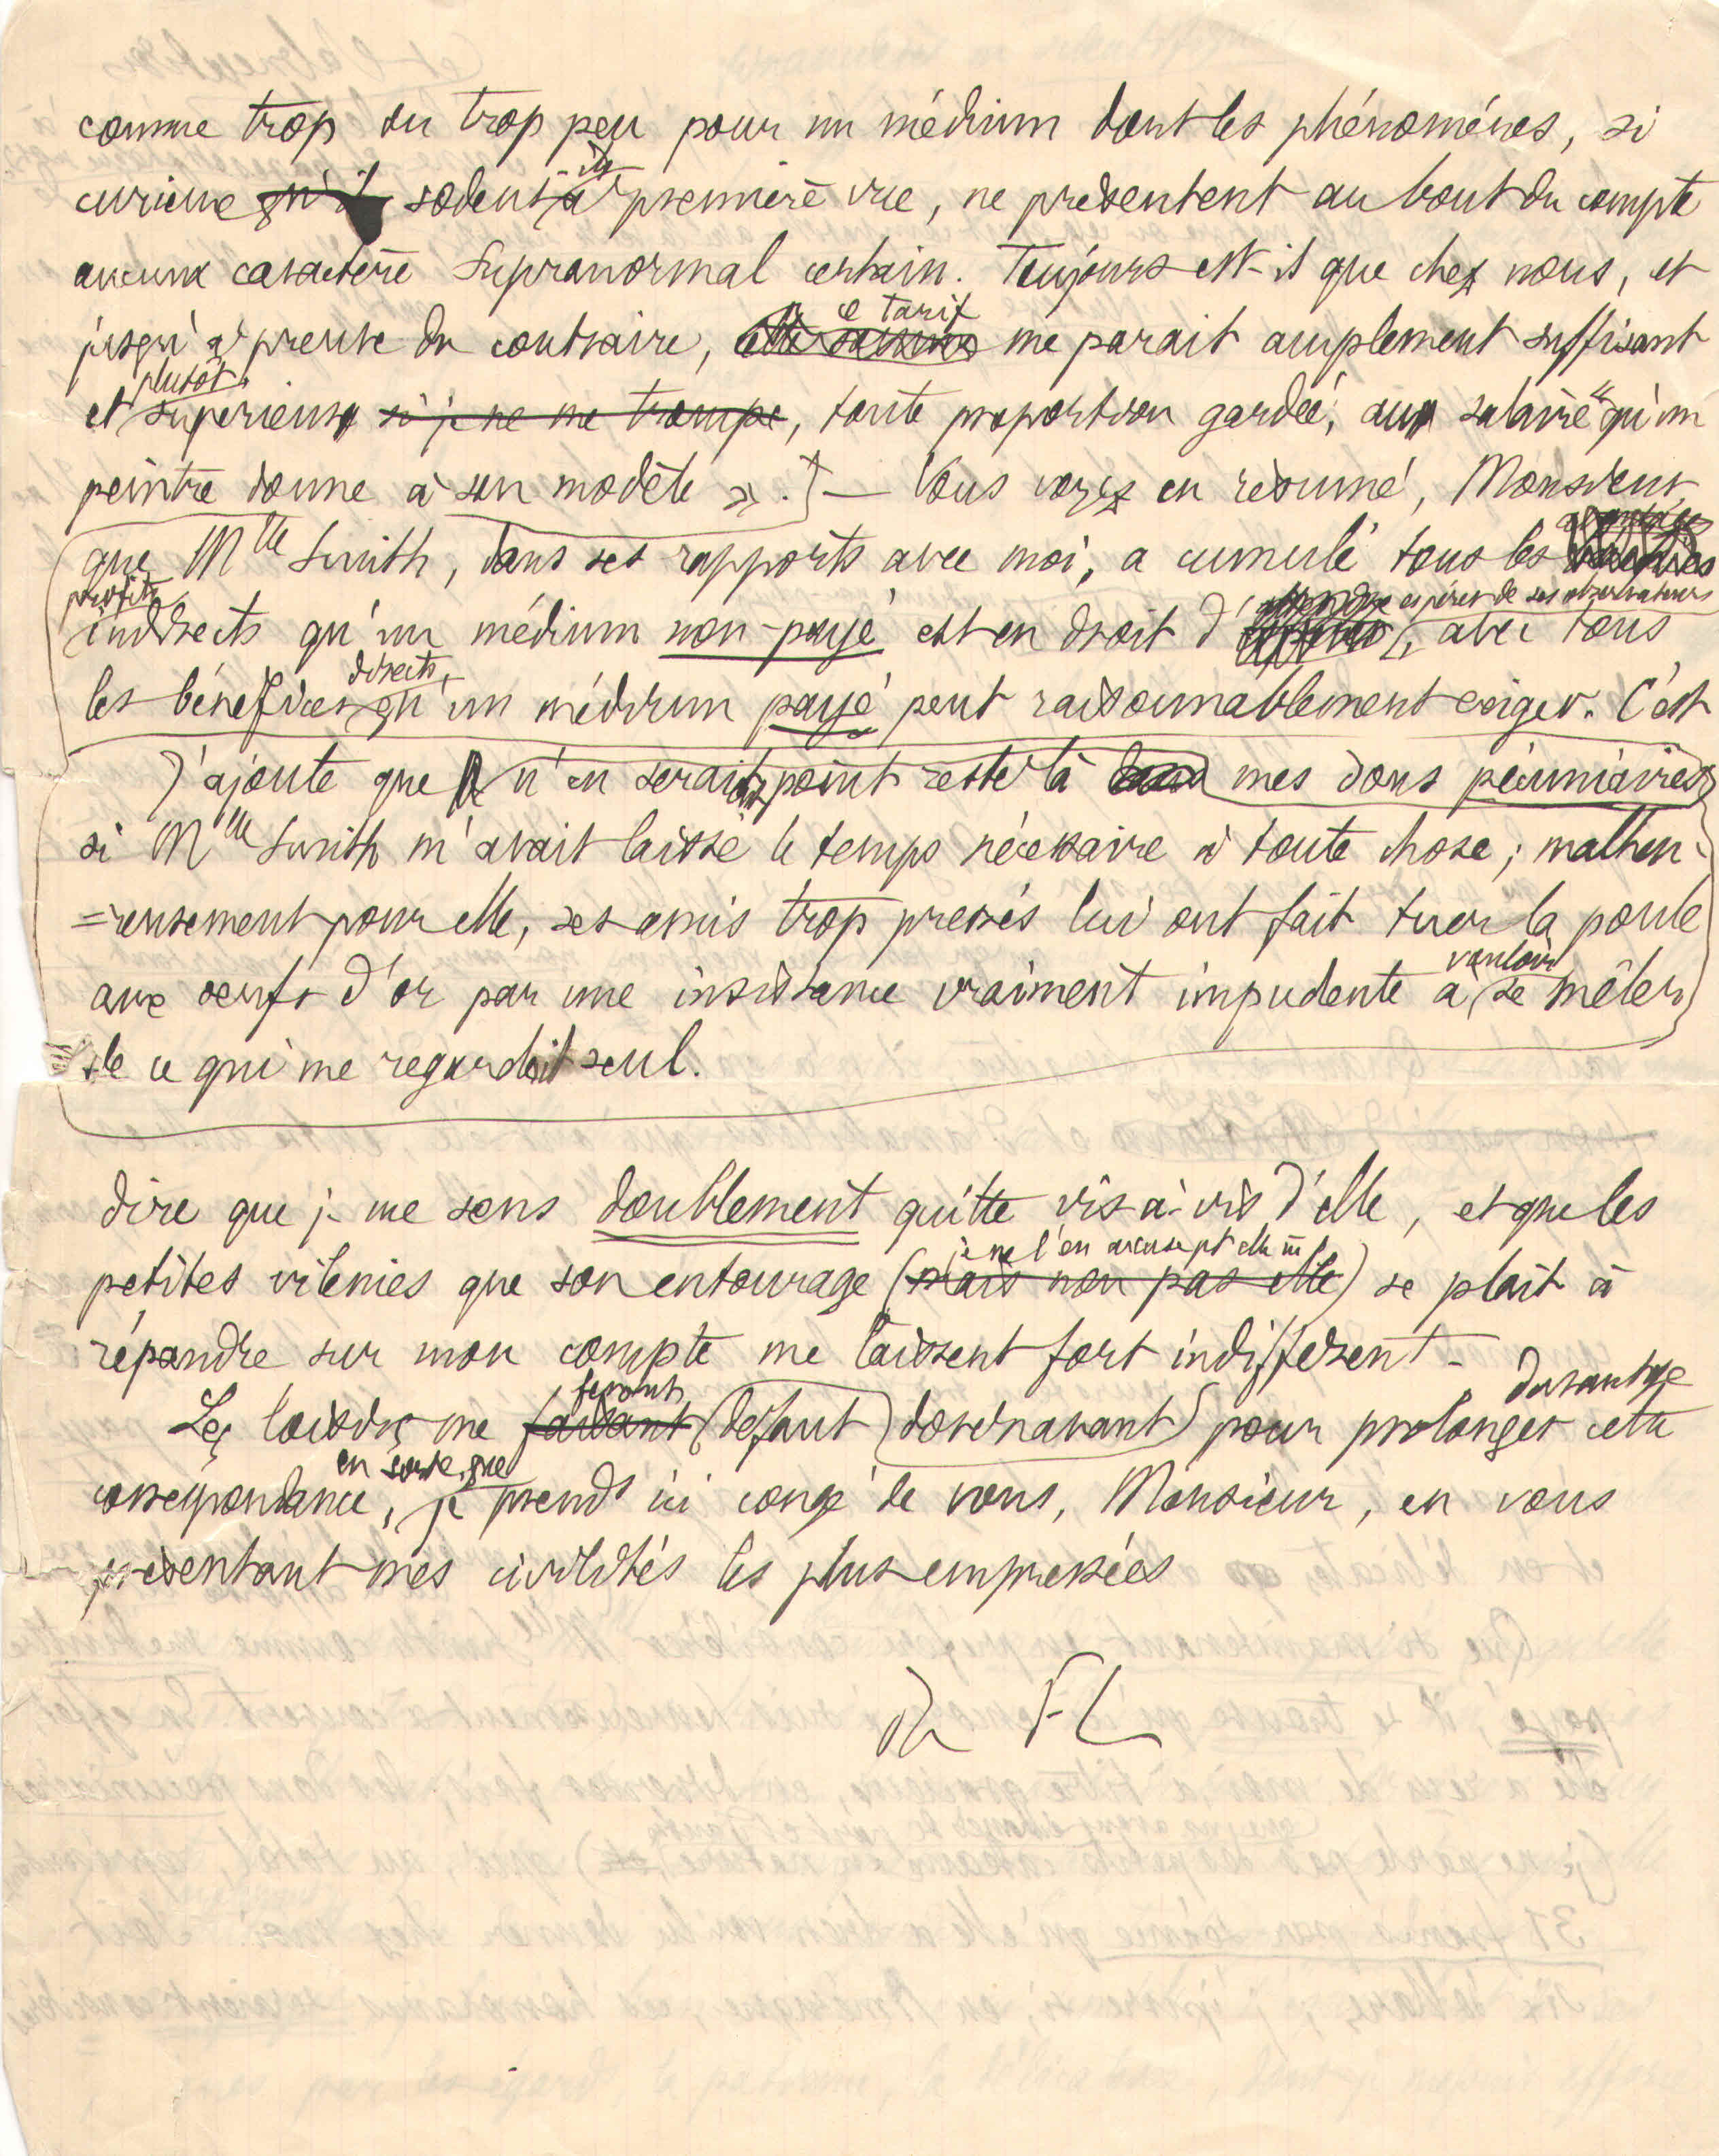 comme trop ou trop peu pour un médium dont les phénomènes, si
curieux qu'il soient-ils à première vue, ne présentent au bout du compte
aucun caractère supranormal certain. Toujours est-il que chez nous, et
ce tarif
jusqu'à preuve du contraire, me parait amplement suffisant
plutôt
et supérieur si je ne me trompe, toute proportion gardée, au salaire "qu'un
peintre donne à son modèle ». — Vous voyez en résumé, Monsieur,
que Mlle Smith, dans ses rapports avec moi, a cumulé tous les
profits
indirects qu'un médium non-payé est en droit d'espérer de ses observateurs, avec tous
directs
les bénéfices qu'un médium payé peut raisonnablement exiger. C'est
J'ajoute que n'en seraient point restés là mes dons pécuniaires
si Mlle Smith m'avait laissé le temps nécessaire à toute chose; malheu-
=reusement pour elle, ses amis trop pressés lui ont fait tuer la poule
vouloir
aux oeufs d'or par une insistance vraiment impudente à se mêler
de ce qui me regardait seul.
dire que je me sens doublement quitte vis à-vis d'elle, et que les
je ne l'en accuse pt elle m
petites vilenies que son entourage (mais non pas elle) se plait à
répandre sur mon compte me laissent fort indifférent -
feront davantage
Les loisirs me faisant défaut dorénavant pour prolonger cette
en sorte que
correspondance, je prends ici congé de vous, Monsieur, en vous
présentant mes civilités les plus empressées
Th Fl